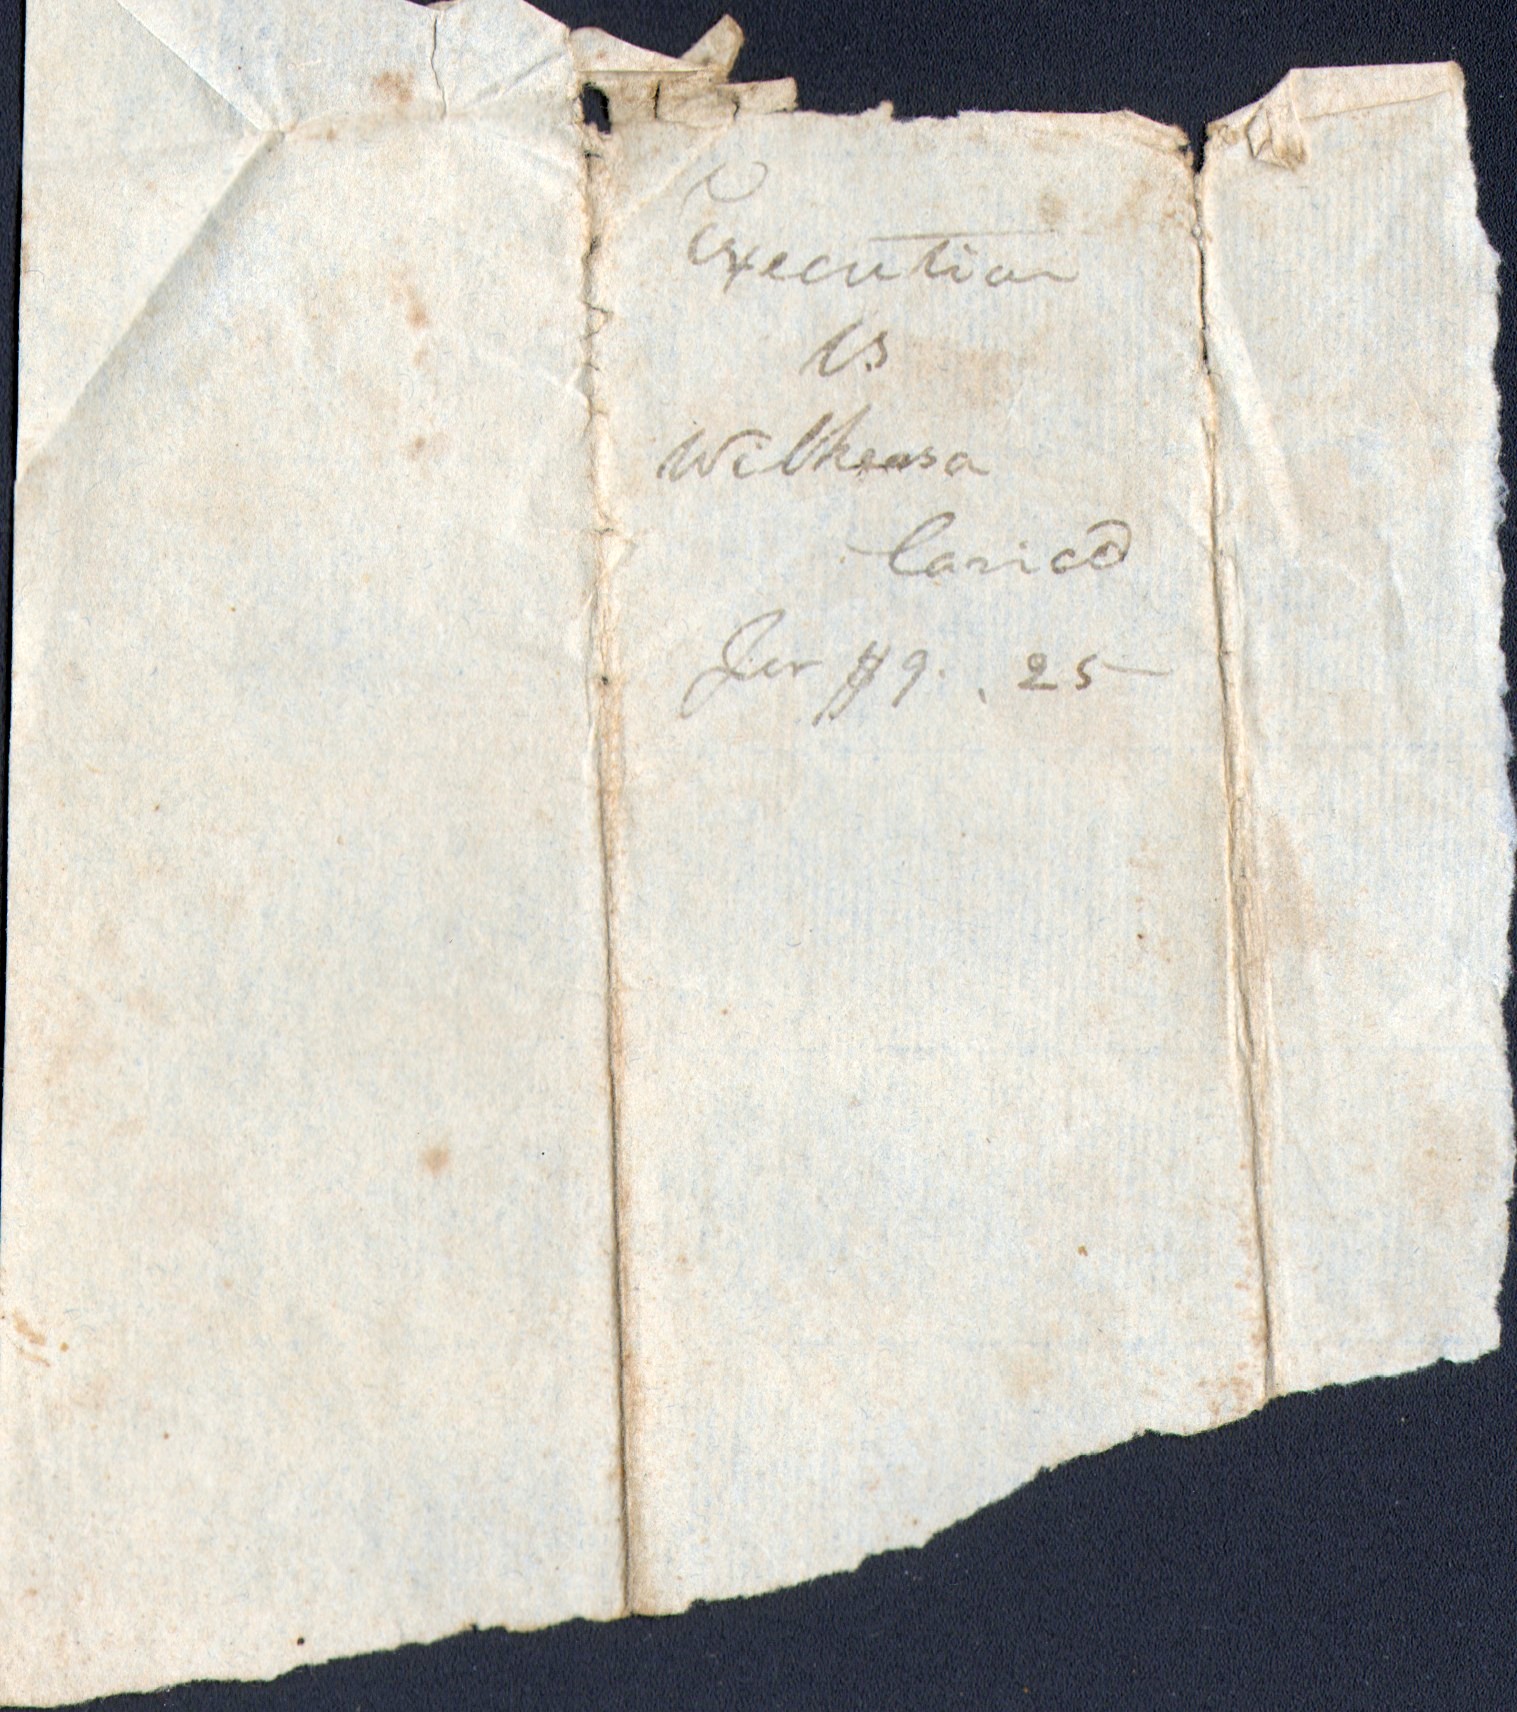 Execution
vs
Wilkerson
Carico
for $9. 25